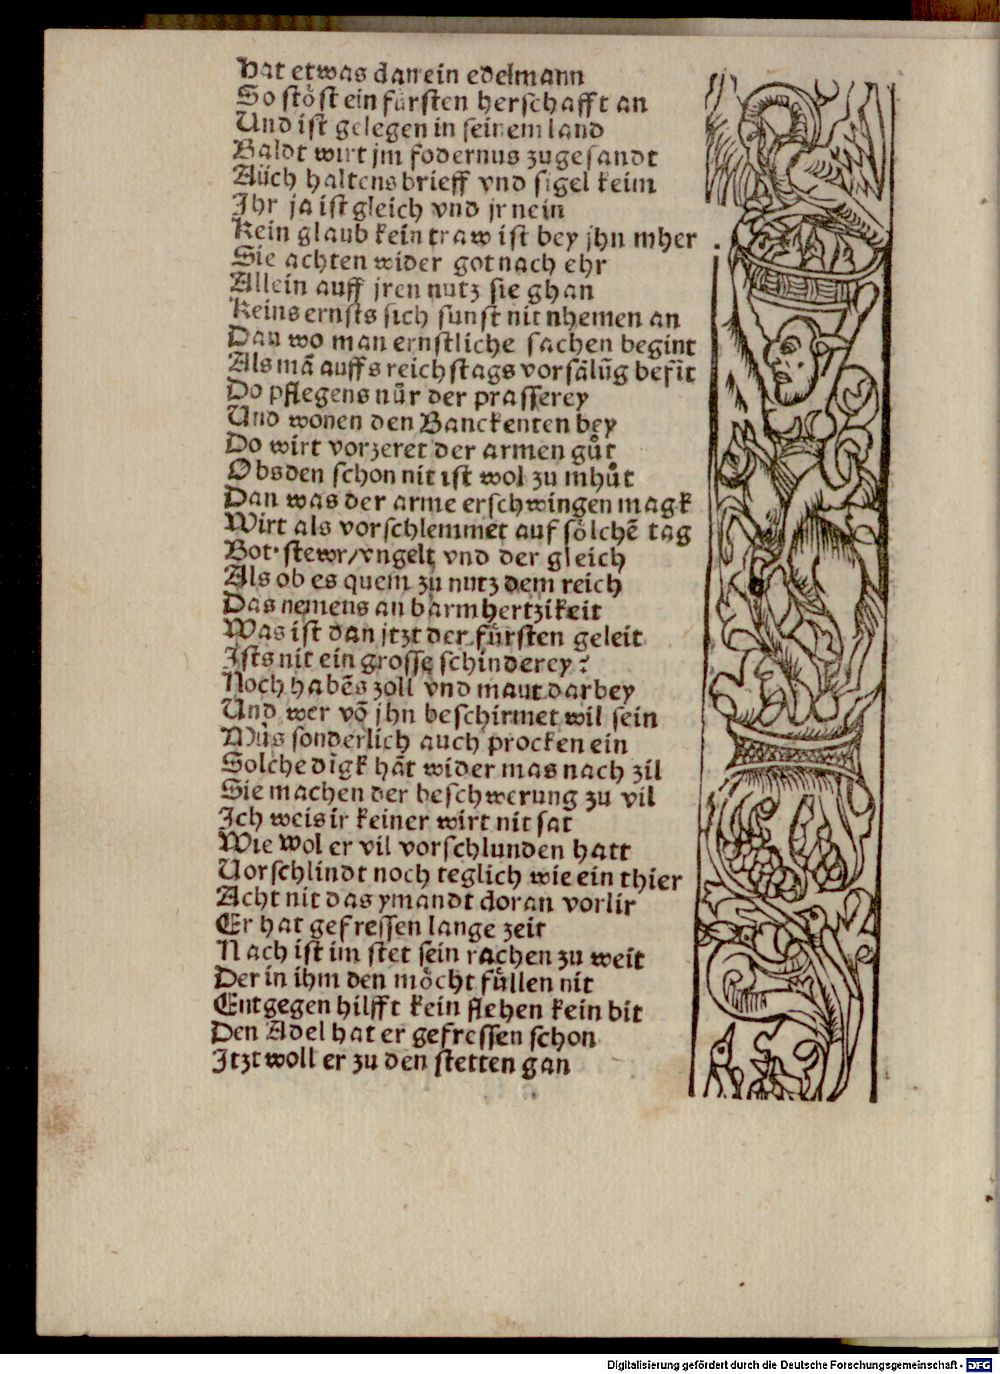 Hat etwas dan ein edelmann
So stöst ein fürsten herschafft an
Und ist gelegen in seinem land
Baldt wirt jm fodernus zugesandt
Aüch haltens brieff vnd sigel keim
Ihr ja ist gleich vnd jr nein
Kein glaub kein traw ist bey jhn mher .
Sie achten wider got nach ehr
Allein auff jren nutz sie ghan
Keins ernsts sich sunst nit nhemen an
Dan wo man ernstliche sachen begint
Als mã auffs reichstags vorsãlũg befĩt
Do pflegens nůr der prasserey
Und wonen den Banckenten bey
Do wirt vorzeret der armen gůt
Obs den schon nit ist wol zu mhůt
Dan was der arme erschwingen magk
Wirt als vorschlemmet auf sölchẽ tag
Bot· stewr/vngelt vnd der gleich
Als ob es quem zu nutz dem reich
Das nemens an barmhertzikeit
Was ist dan jtzt der fürsten geleit
Ists nit ein grosse schinderey?
Noch habẽs zoll vnd maut darbey
Und wer võ jhn beschirmet wil sein
Můs sonderlich auch procken ein
Solche digk hãt wider mas nach zil
Sie machen der beschwerung zu vil
Ich weis ir keiner wirt nit sat
Wie wol er vil vorschlunden hatt
Vorschlindt noch teglich wie ein thier
Acht nit das ymandt doran vorlir
Er hat gefressen lange zeit
Nach ist im stet sein rachen zu weit
Der in ihm den möcht füllen nit
Entgegen hilfft kein flehen kein bit
Den Adel hat er gefressen schon
Itzt woll er zu den stetten gan
Digitalisierung gefördert durch die Deutsche Forschungsgemeinschaft - DFG